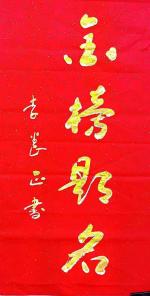 金榜题名
李岩正书